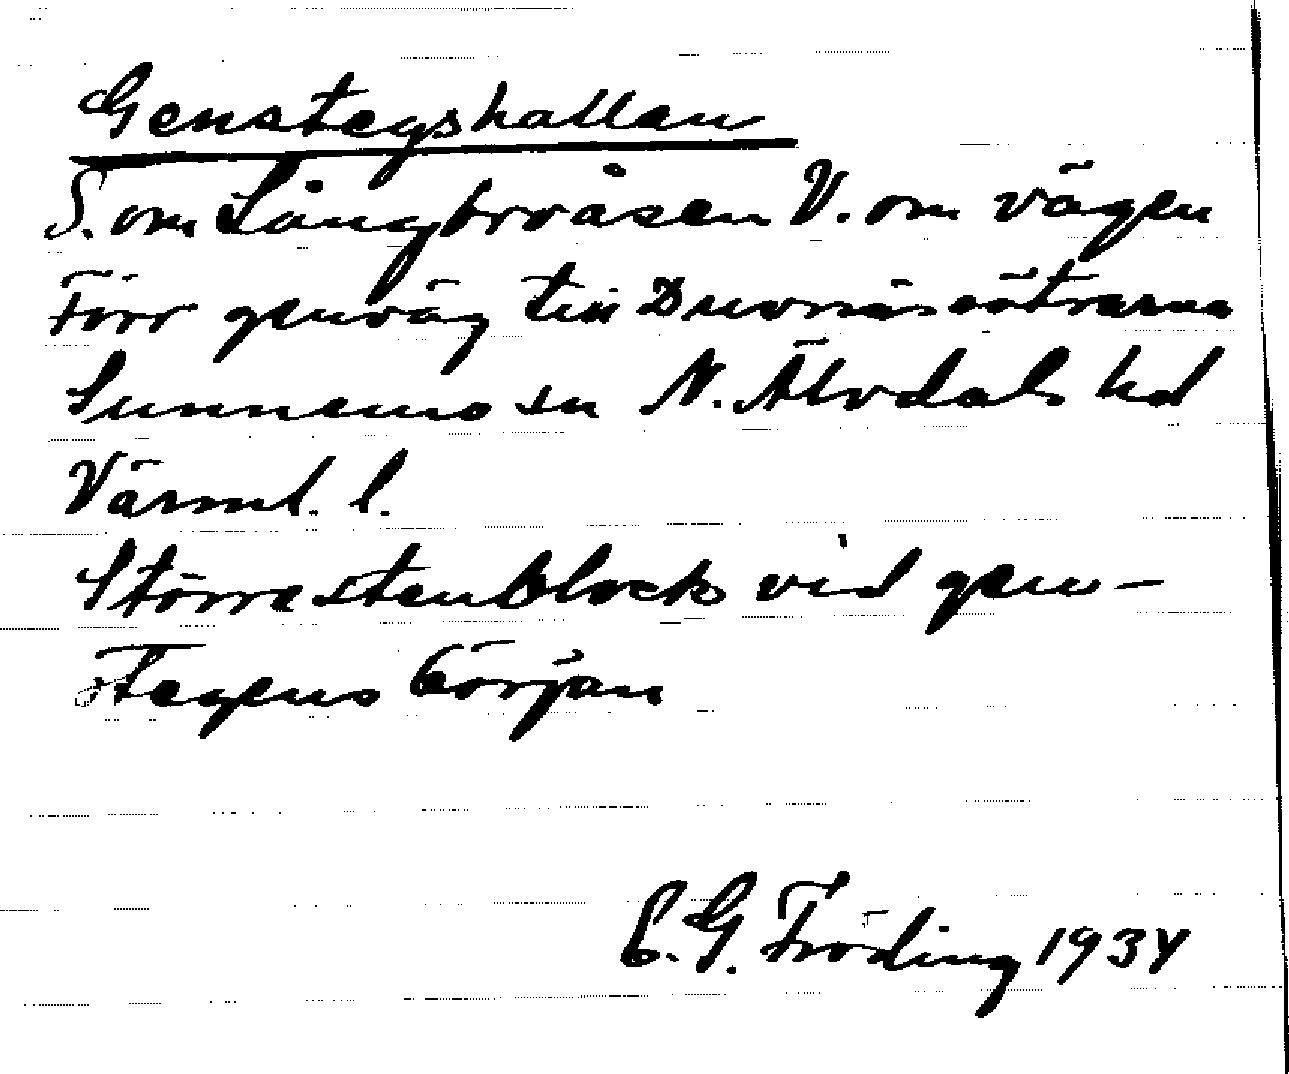 Genstegshallen
S. om Långbroåsen V. om vägen
Förr genväg till Duvnässätrarna
Sunnemo sn N. Älvdals hd
Värml. l.
Större stenblock vid gen-
stegens början
E. G. Fröding 1934